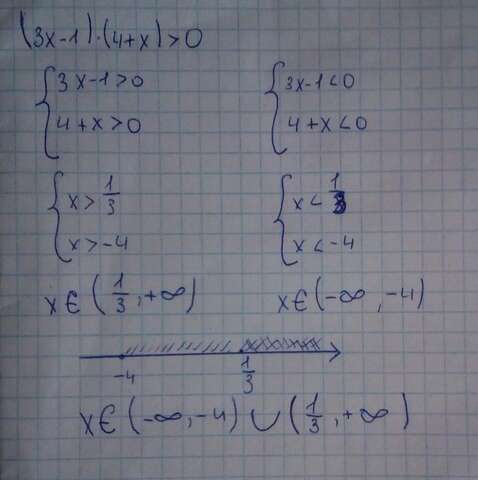 (3x-1)·(4+x)>0
{3x-1>0
4+x>0
{3x-1<0
4+x<0
{x>1/3
x>-4
{x<1/3
x<-4
x∈(1/3,+∞)
x∈(-∞,-4)
-4 1/3
x∈(-∞,-4)∪(1/3,+∞)